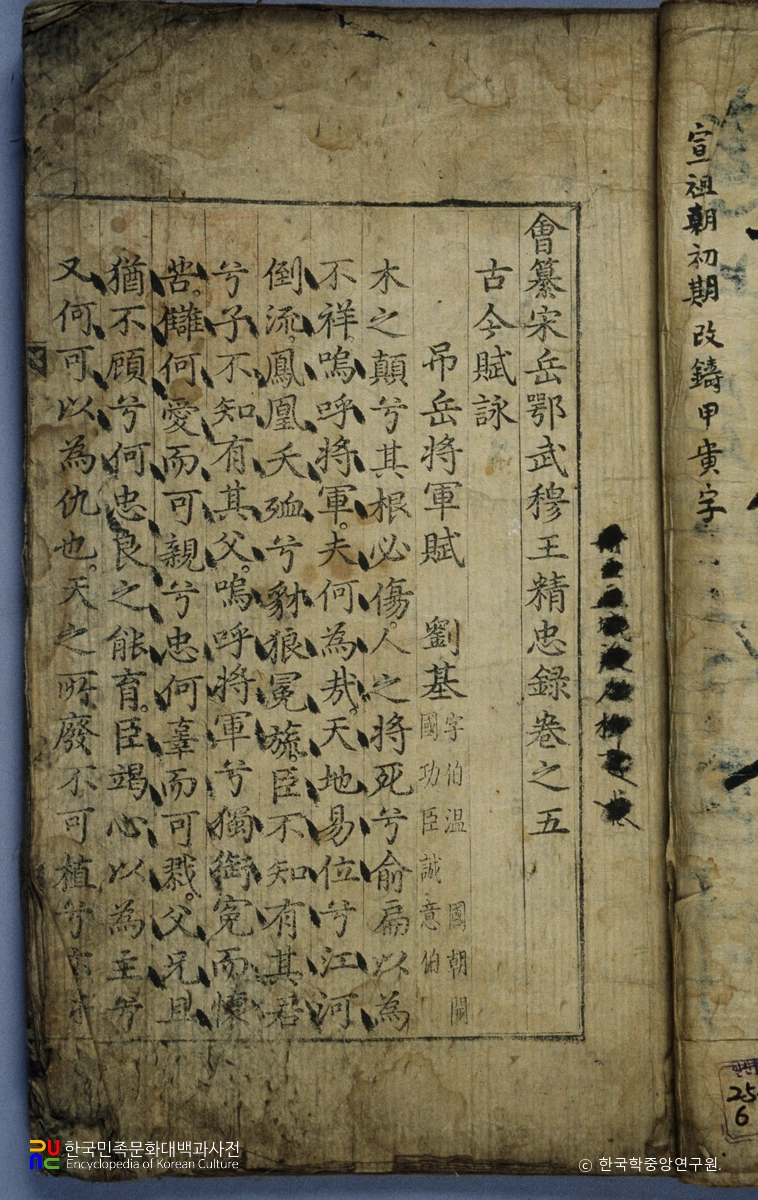 宣祖朝初期改鑄甲寅字
會纂宋岳鄂武穆王精忠錄卷之五
古今賦詠
吊岳將軍賦 劉基 字伯溫 國朝開
國功臣誠意伯
木之顛兮其根必傷。人之將死兮俞扁以為
不祥。嗚呼將軍。夫何為哉。天地易位兮江河
倒流。鳳凰夭殈兮豺狼冕旒。臣不知有其君
兮子不知有其父。嗚呼將軍兮獨銜冤而懷
苦。讎何愛而可親兮忠何辜而可戮。父兄且
猶不顧兮何忠良之能育。臣竭心以為主兮
又何可以為仇也。天之所廢不可植兮
25
6
한국민족문화대백과사전
Encyclopedia of Korean Culture
© 한국학중앙연구원.